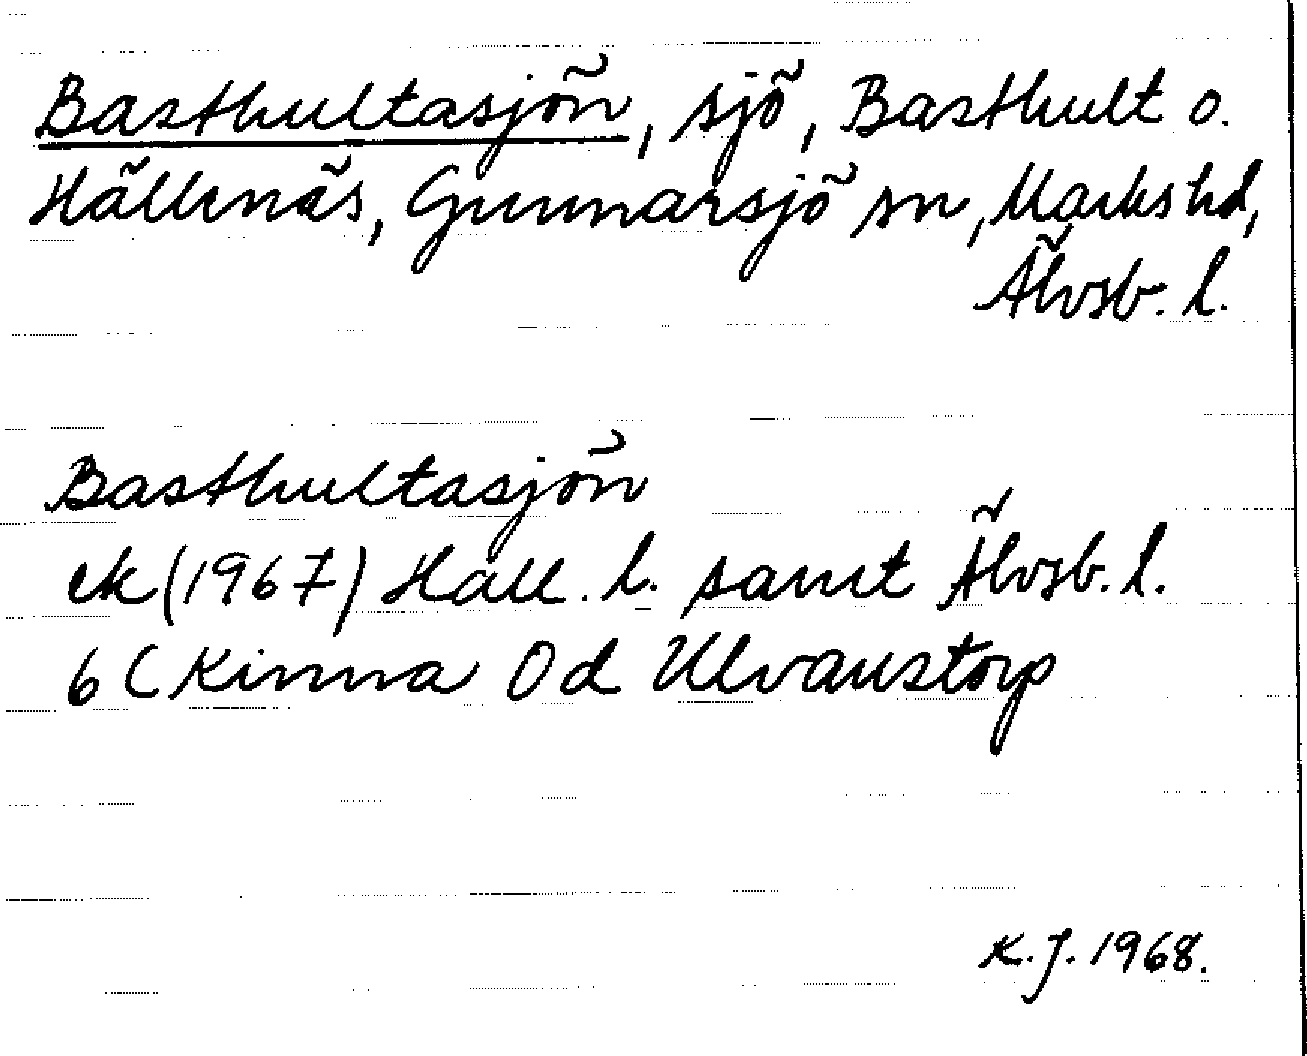 Basthultasjön, sjö, Basthult o.
Hällnäs, Gunnarsjö sn, Marks hd,
Älvsb. l.
Basthultasjön
ek (1967) Hall. l. samt Älvsb. l.
6 C Kinna 0 d Ulvanstorp
K. J. 1968.